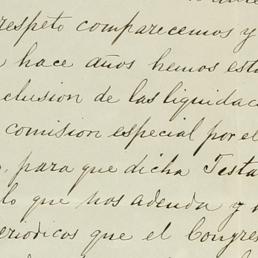 respeto comparecemos y
hace años hemos est
clusion de las liquidac
comision especial por el
para que dicha Testa
lo que nos adeuda y
eriodicos que el Congres